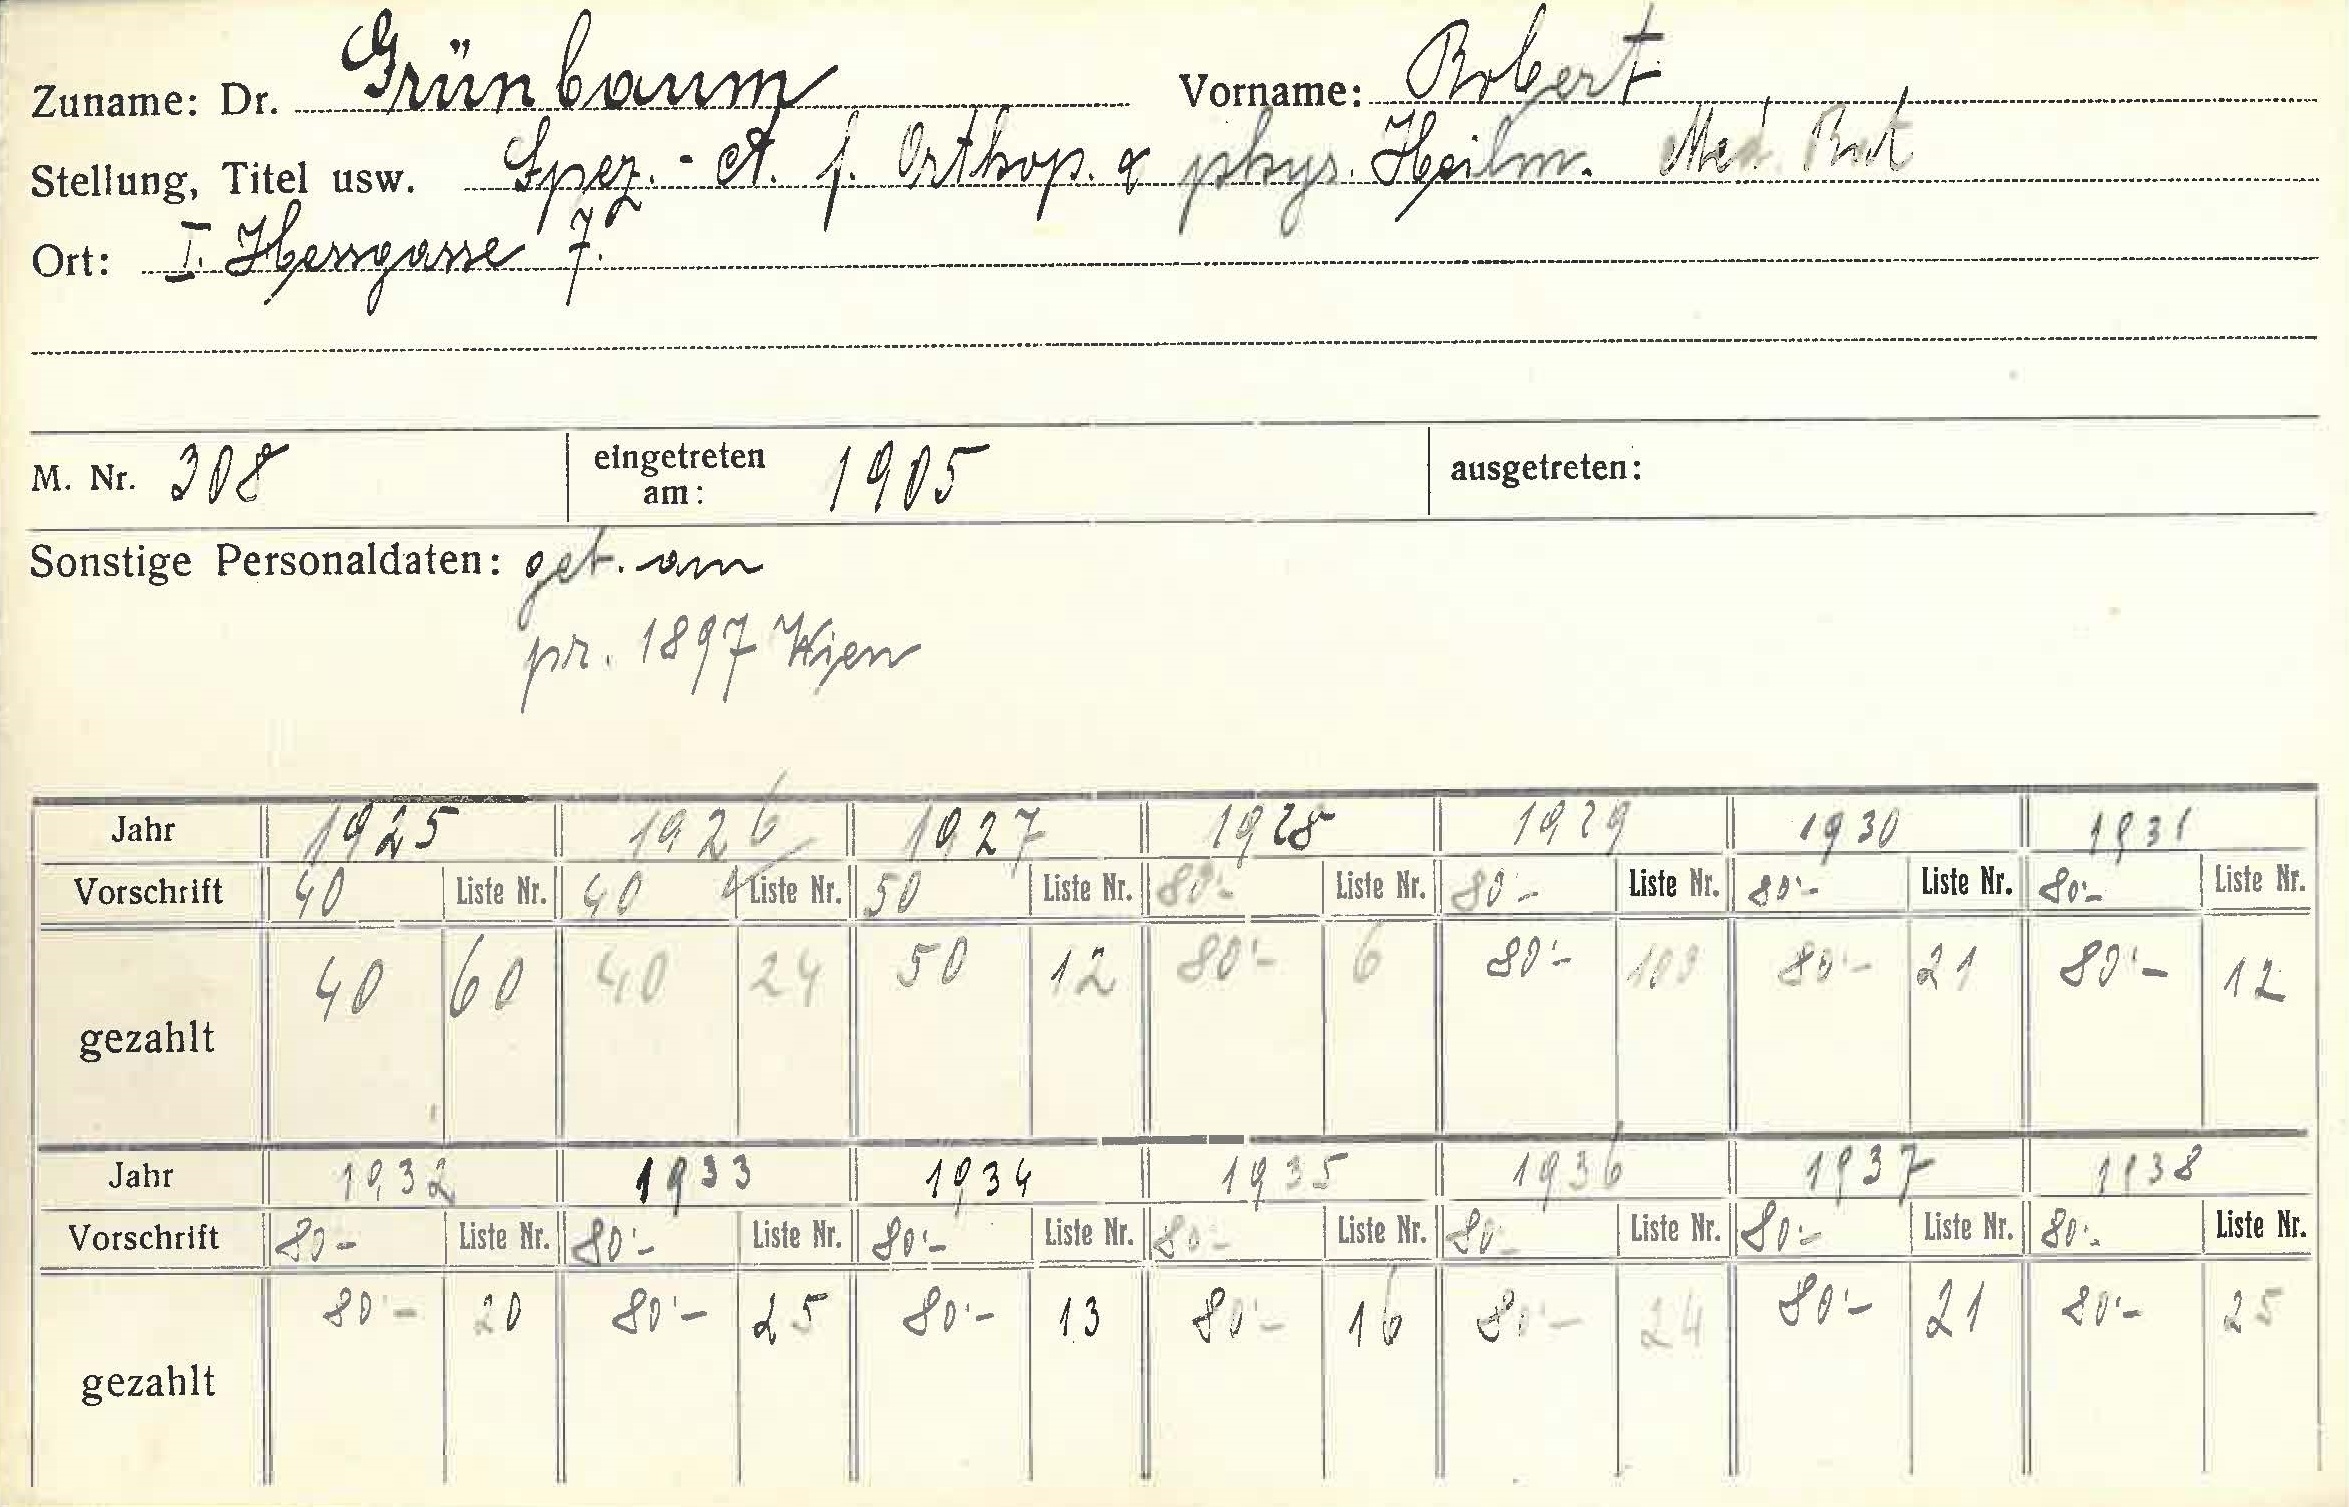 Zuname: Dr. Grünbaum Vorname: Robert
Stellung, Titel usw. Spez.-A. f. Orthop. & phys. Heilm. Med. Rat
Ort: I. Hessgasse 7.
M. Nr. 308 eingetreten am: 1905 ausgetreten:
Sonstige Personaldaten: geb. am
pr. 1897 Wien
Jahr 1925 1926 1927 1928 1929 1930 1931
Vorschrift 40 Liste Nr. 40 Liste Nr. 50 Liste Nr. 80'- Liste Nr. 80'- Liste Nr. 80'- Liste Nr. 80'- Liste Nr.
gezahlt 40 60 40 24 50 12 80'- 6 80'- 103 80'- 21 80'- 12
Jahr 1932 1933 1934 1935 1936 1937 1938
Vorschrift 80- Liste Nr. 80'- Liste Nr. 80'- Liste Nr. 80- Liste Nr. 80- Liste Nr. 80'- Liste Nr. 80'- Liste Nr.
gezahlt 80'- 20 80'- 25 80'- 13 80'- 16 80'- 24 80'- 21 80'- 25